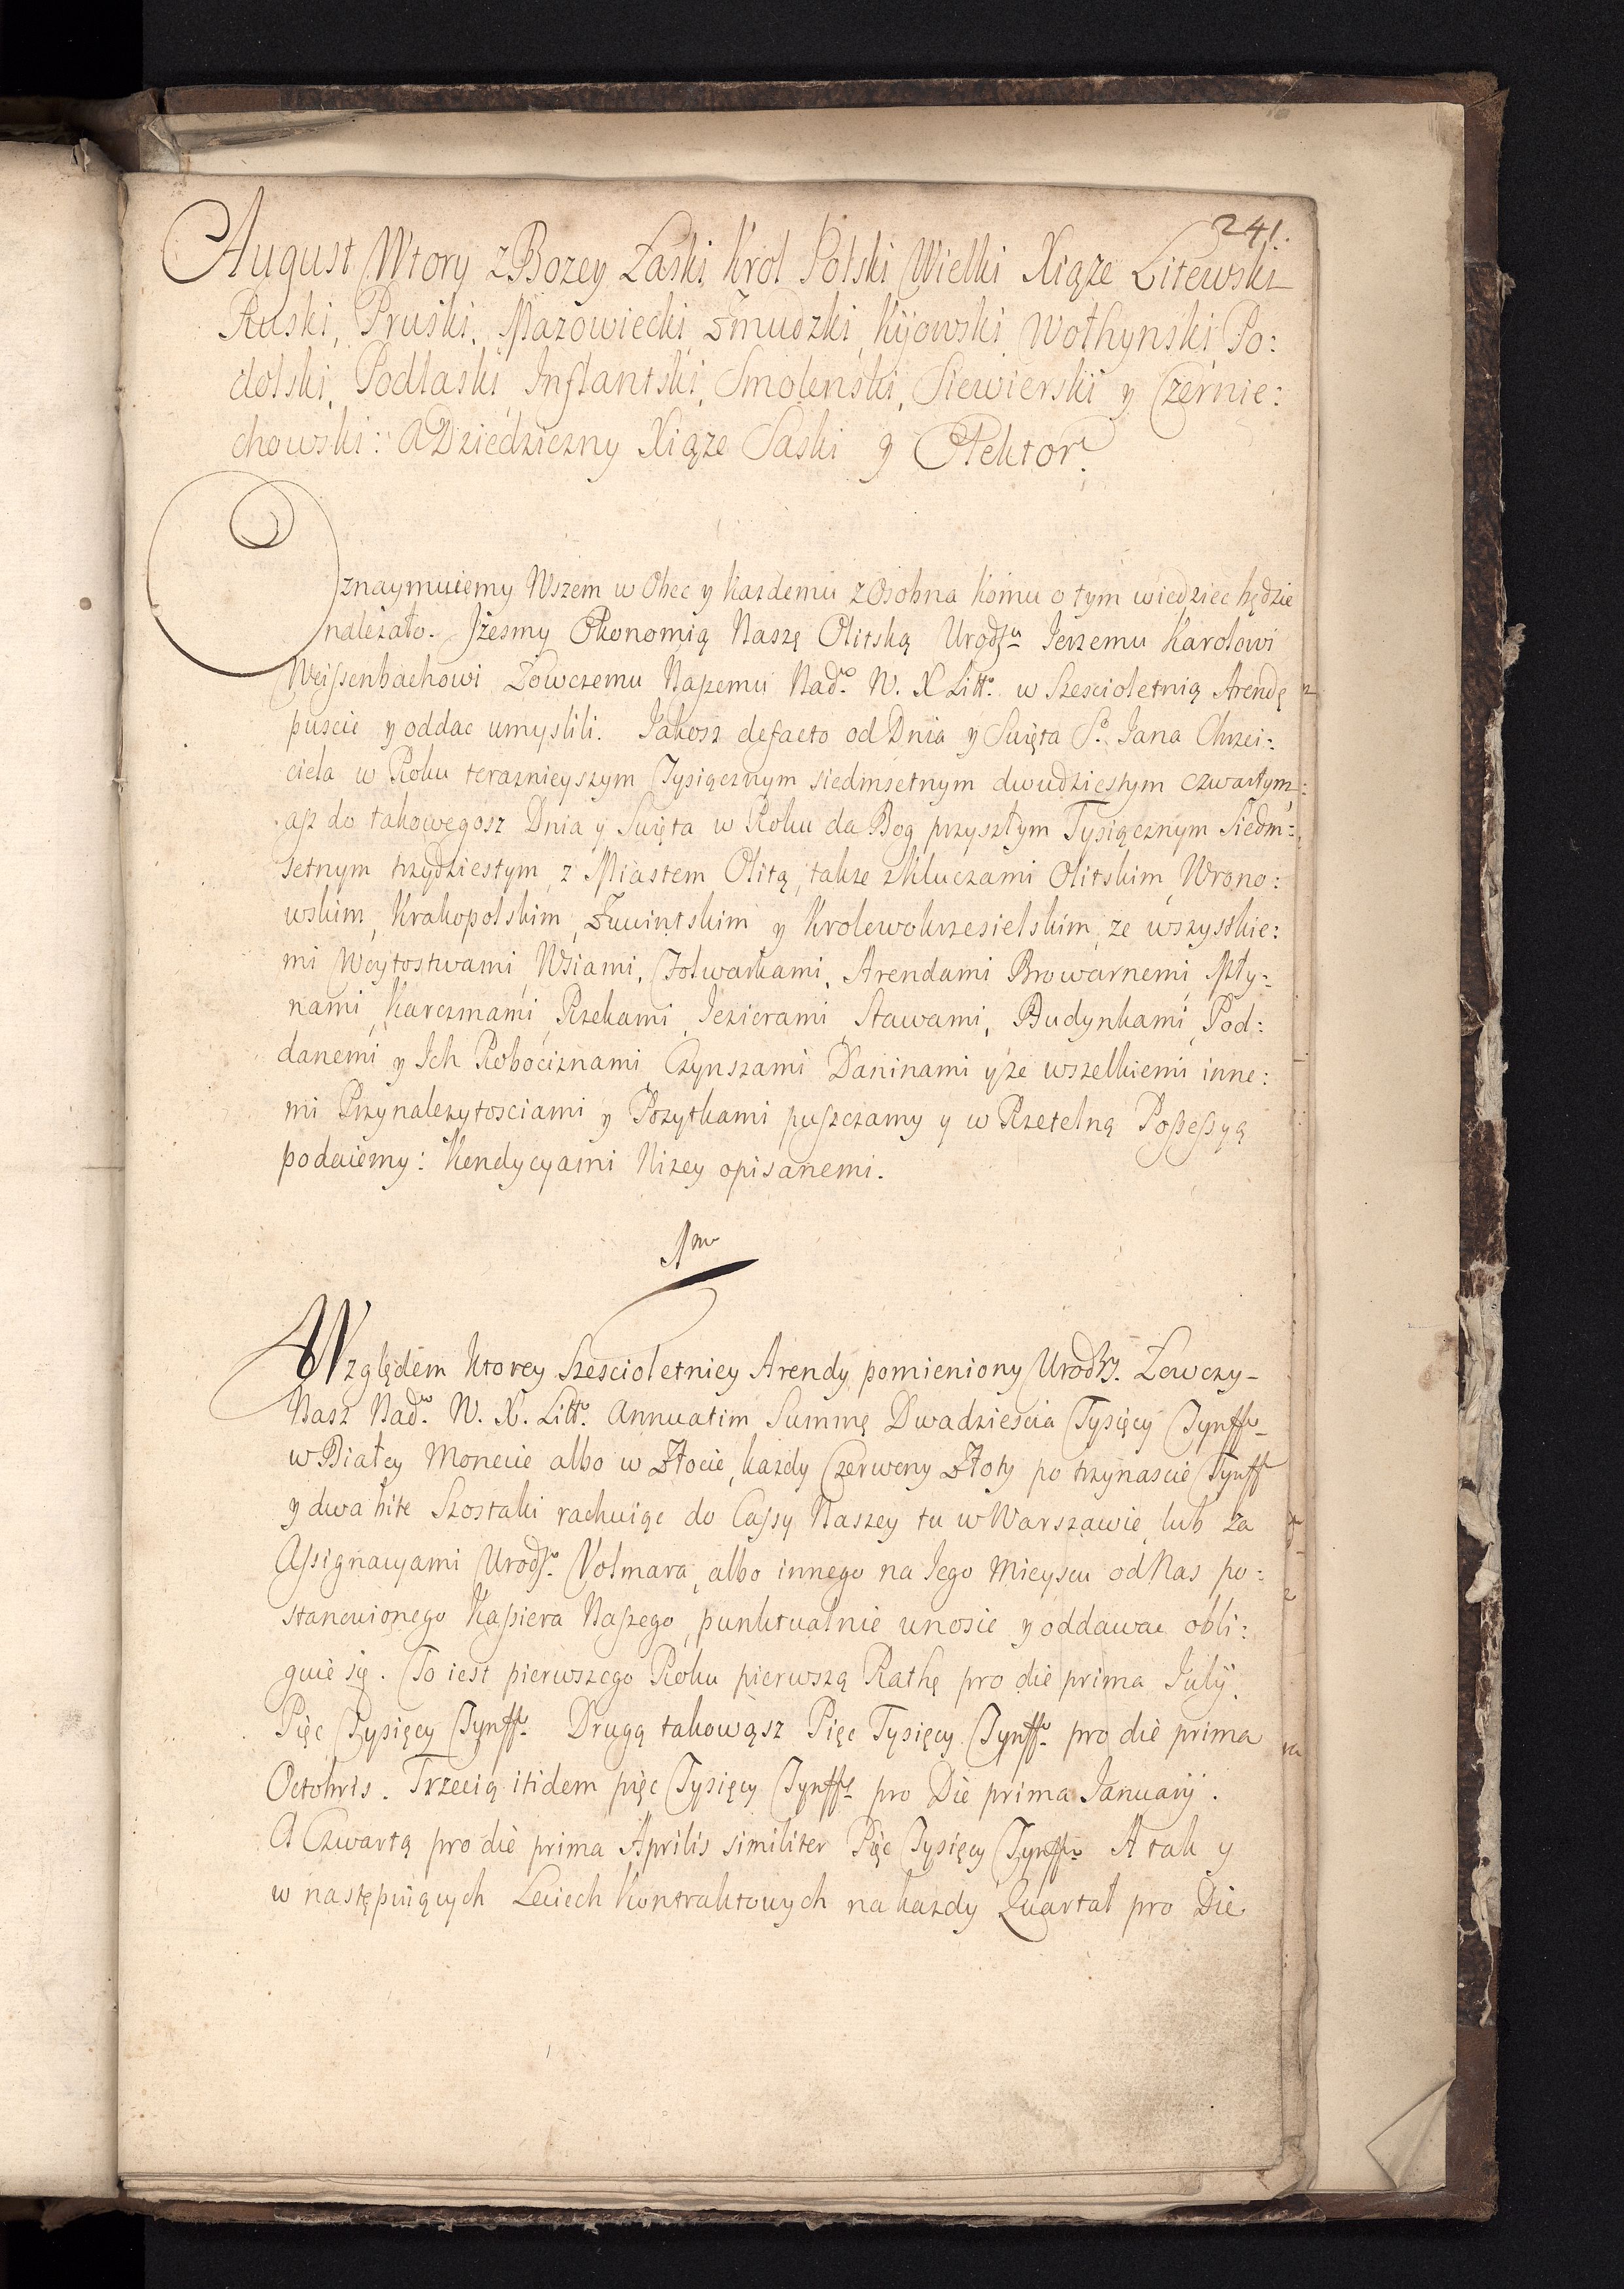 241.
August Wtory z Bozey Łaski Krol Polski Wielki Xiąze Litewski
Ruski, Pruski, Mazowiecki Zmudzki, Kijowski Wołhynski Po:
dolski, Podlaski Inflantski, Smolenski, Siewierski y Czernie:
chowski: A Dziedziczny Xiąze Saski y Elektor.
Oznaymuiemy Wszem w Obec y kazdemu z Osobna komu o tym wiedziec będzie
nalezało. Jżesmy Ekonomią Naszą Olitską Urodzu Ierzemu Karolowi
Weissenbachowi Łowczemu Naszemu Nadto W. X Litto w Szescioletnią Arendę
puscic y oddac umyslili. Jakosz defacto od Dnia y Swięta So Jana Chrzci:
ciela w Roku teraznieyszym Tysiącznym siedmsetnym dwudziestym czwartym:
asz do takowegosz Dnia y Swięta w Roku da Bog przyszłym Tysiącznym Siedm:
setnym trzydziestym, z Miastem Olitą, takze z Kluczami Olitskim, Wrono:
wskim, Krakopolskim, Zuwintskim y Krolewokrzesielskim, ze wszystkie:
mi Woytostwami, Wsiami, Folwarkami, Arendami Browarnemi, Mły:
nami, Karczmami, Rzekami, Iezierami, Stawami, Budynkami, Pod:
danemi y Ich Robociznami, Czynszami Daninami y ze wszelkiemi inne:
mi Przynalezytosciami y Pozytkami puszczamy y w Rzetelną Possessyą
podaiemy: Kondycyami Nizey opisanemi.
1mo
Względem Ktorey Szescioletniey Arendy pomieniony Urodzy. Łowczy
Nasz Nadto W. X. Litto Annuatim Summę Dwadziescia Tysięcy Tynffow
w Białey Monecie albo w Złocie, kazdy Czerwony Złoty po trzynascie Tynff
y dwa bite Szostaki rachuiąc do Cassy Naszey tu w Warszawie, lub za
Assignacyami Urodzo Volmara, albo innego na Iego Mieyscu od Nas po:
stanowionego Kassiera Naszego, punktualnie wnosic y oddawac obli:
guie się. To iest pierwszego Roku pierwszą Rathę pro die prima Julij
Pięc Tysięcy Tynffow Drugą takowąsz Pięc Tysięcy Tynffow pro die prima
Octobris. Trzecią itidem pięc Tysięcy Tynffow pro Die prima Januarij.
A Czwartą pro die prima Aprilis similiter Pięc Tysięcy Tynffow A tak y
w następuiących Leciech Kontraktowych na kazdy Quartał pro Die